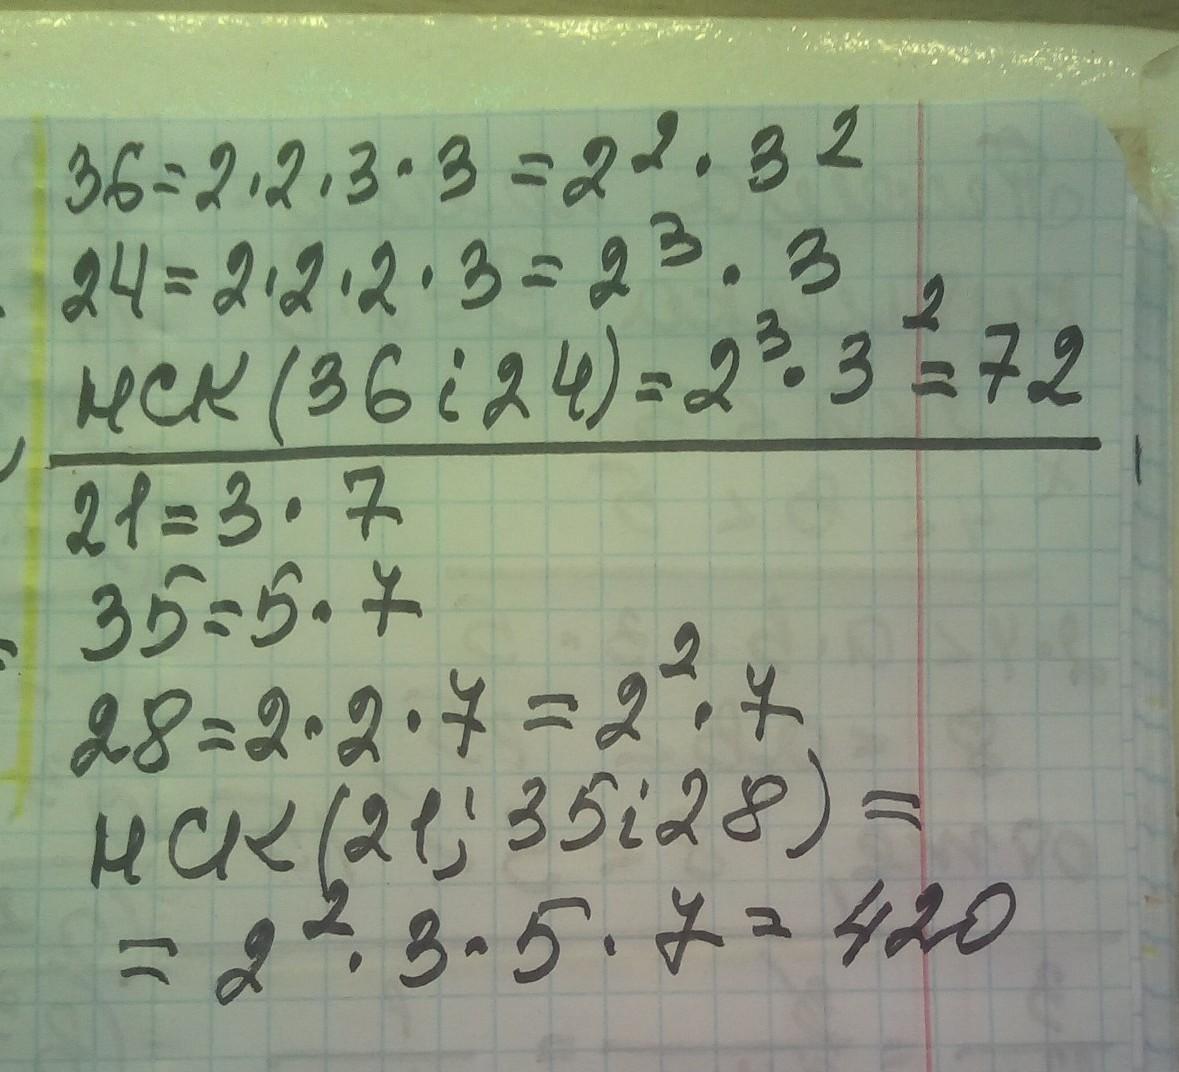 36=2·2·3·3=2²·3²
24=2·2·2·3=2³·3
НСК(36 і 24)=2³·3²=72
21=3·7
35=5·7
28=2·2·7=2²·7
НСК(21; 35 і 28)=
=2²·3·5·7=420